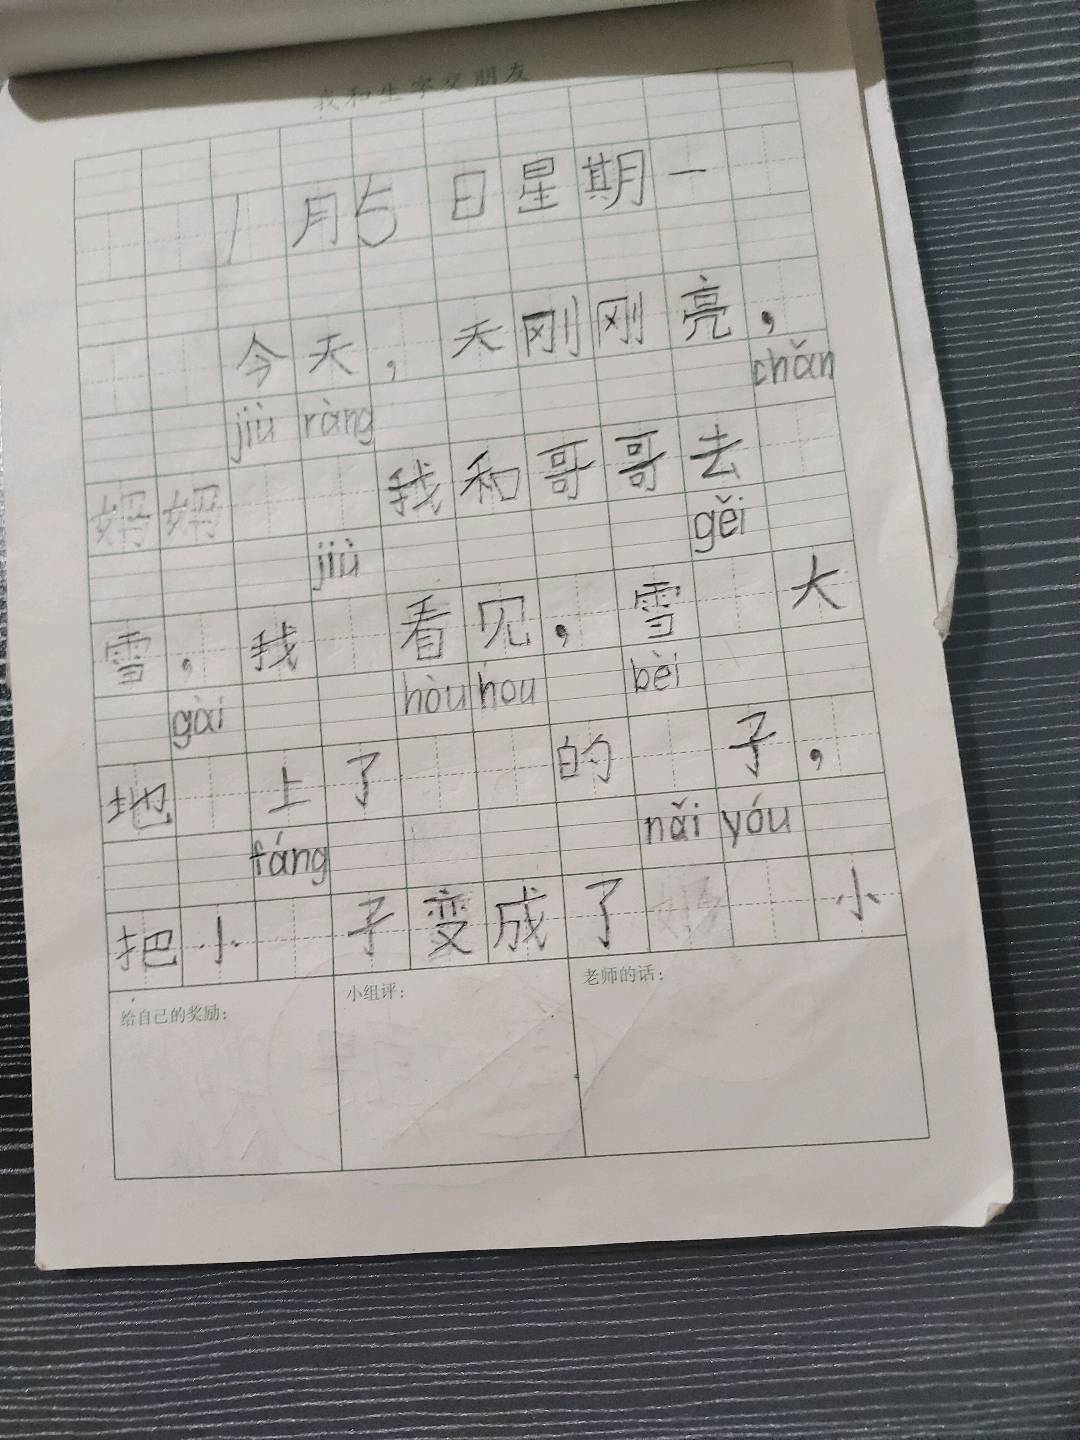 我和生字交朋友
1月5日星期一
今天，天刚刚亮，
jiù ràng chǎn
妈妈 我和哥哥去
jiù gěi
雪，我 看见，雪 大
gài hòu hou bèi
地 上了 的 子，
fáng nǎi yóu
把小 子变成了 小
给自己的奖励：
小组评：
老师的话：